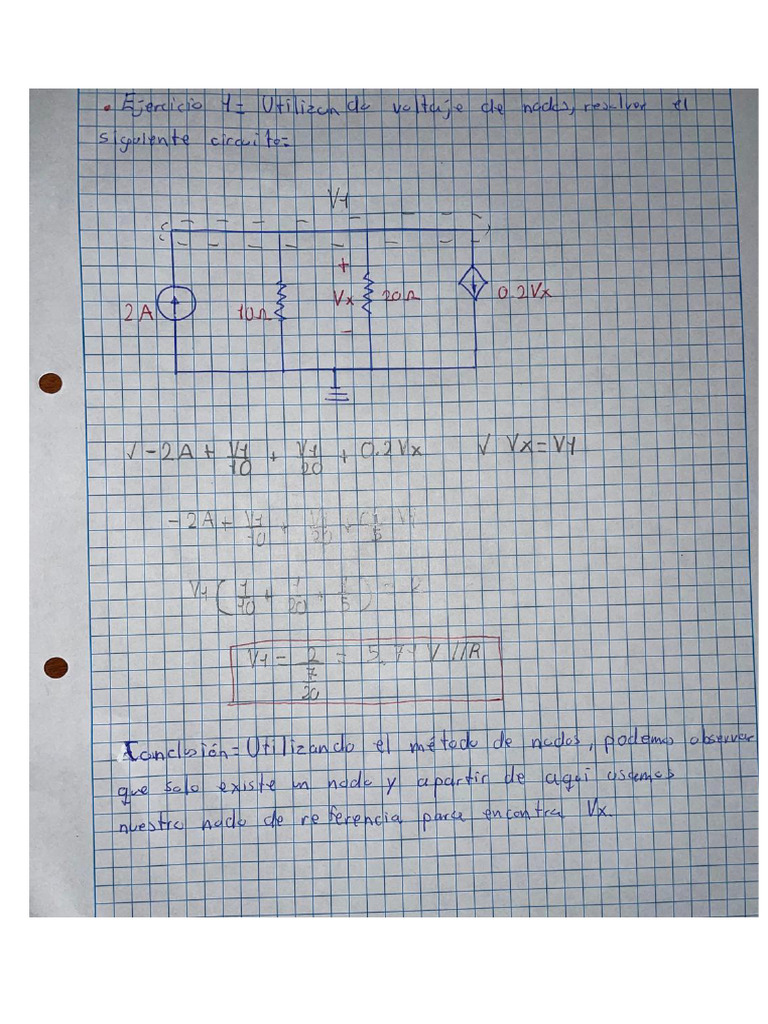 • Ejercicio 1= Utilizando voltaje de nodos, resolver el
siguiente circuito=
V1
+
2A
10Ω
Vx
20Ω
0.2Vx
-
√ -2A + V1/10 + V1/20 + 0.2Vx √ Vx=V1
-2A + V1/10 + V1/20 + 1/5 V1
V1 (1/10 + 1/20 + 1/5) = 2
V1 = 2/(7/20) = 5.71 V //R
Conclusión= Utilizando el método de nodos, podemos observar
que solo existe un nodo y apartir de aqui usamos
nuestro nodo de referencia para encontra Vx.